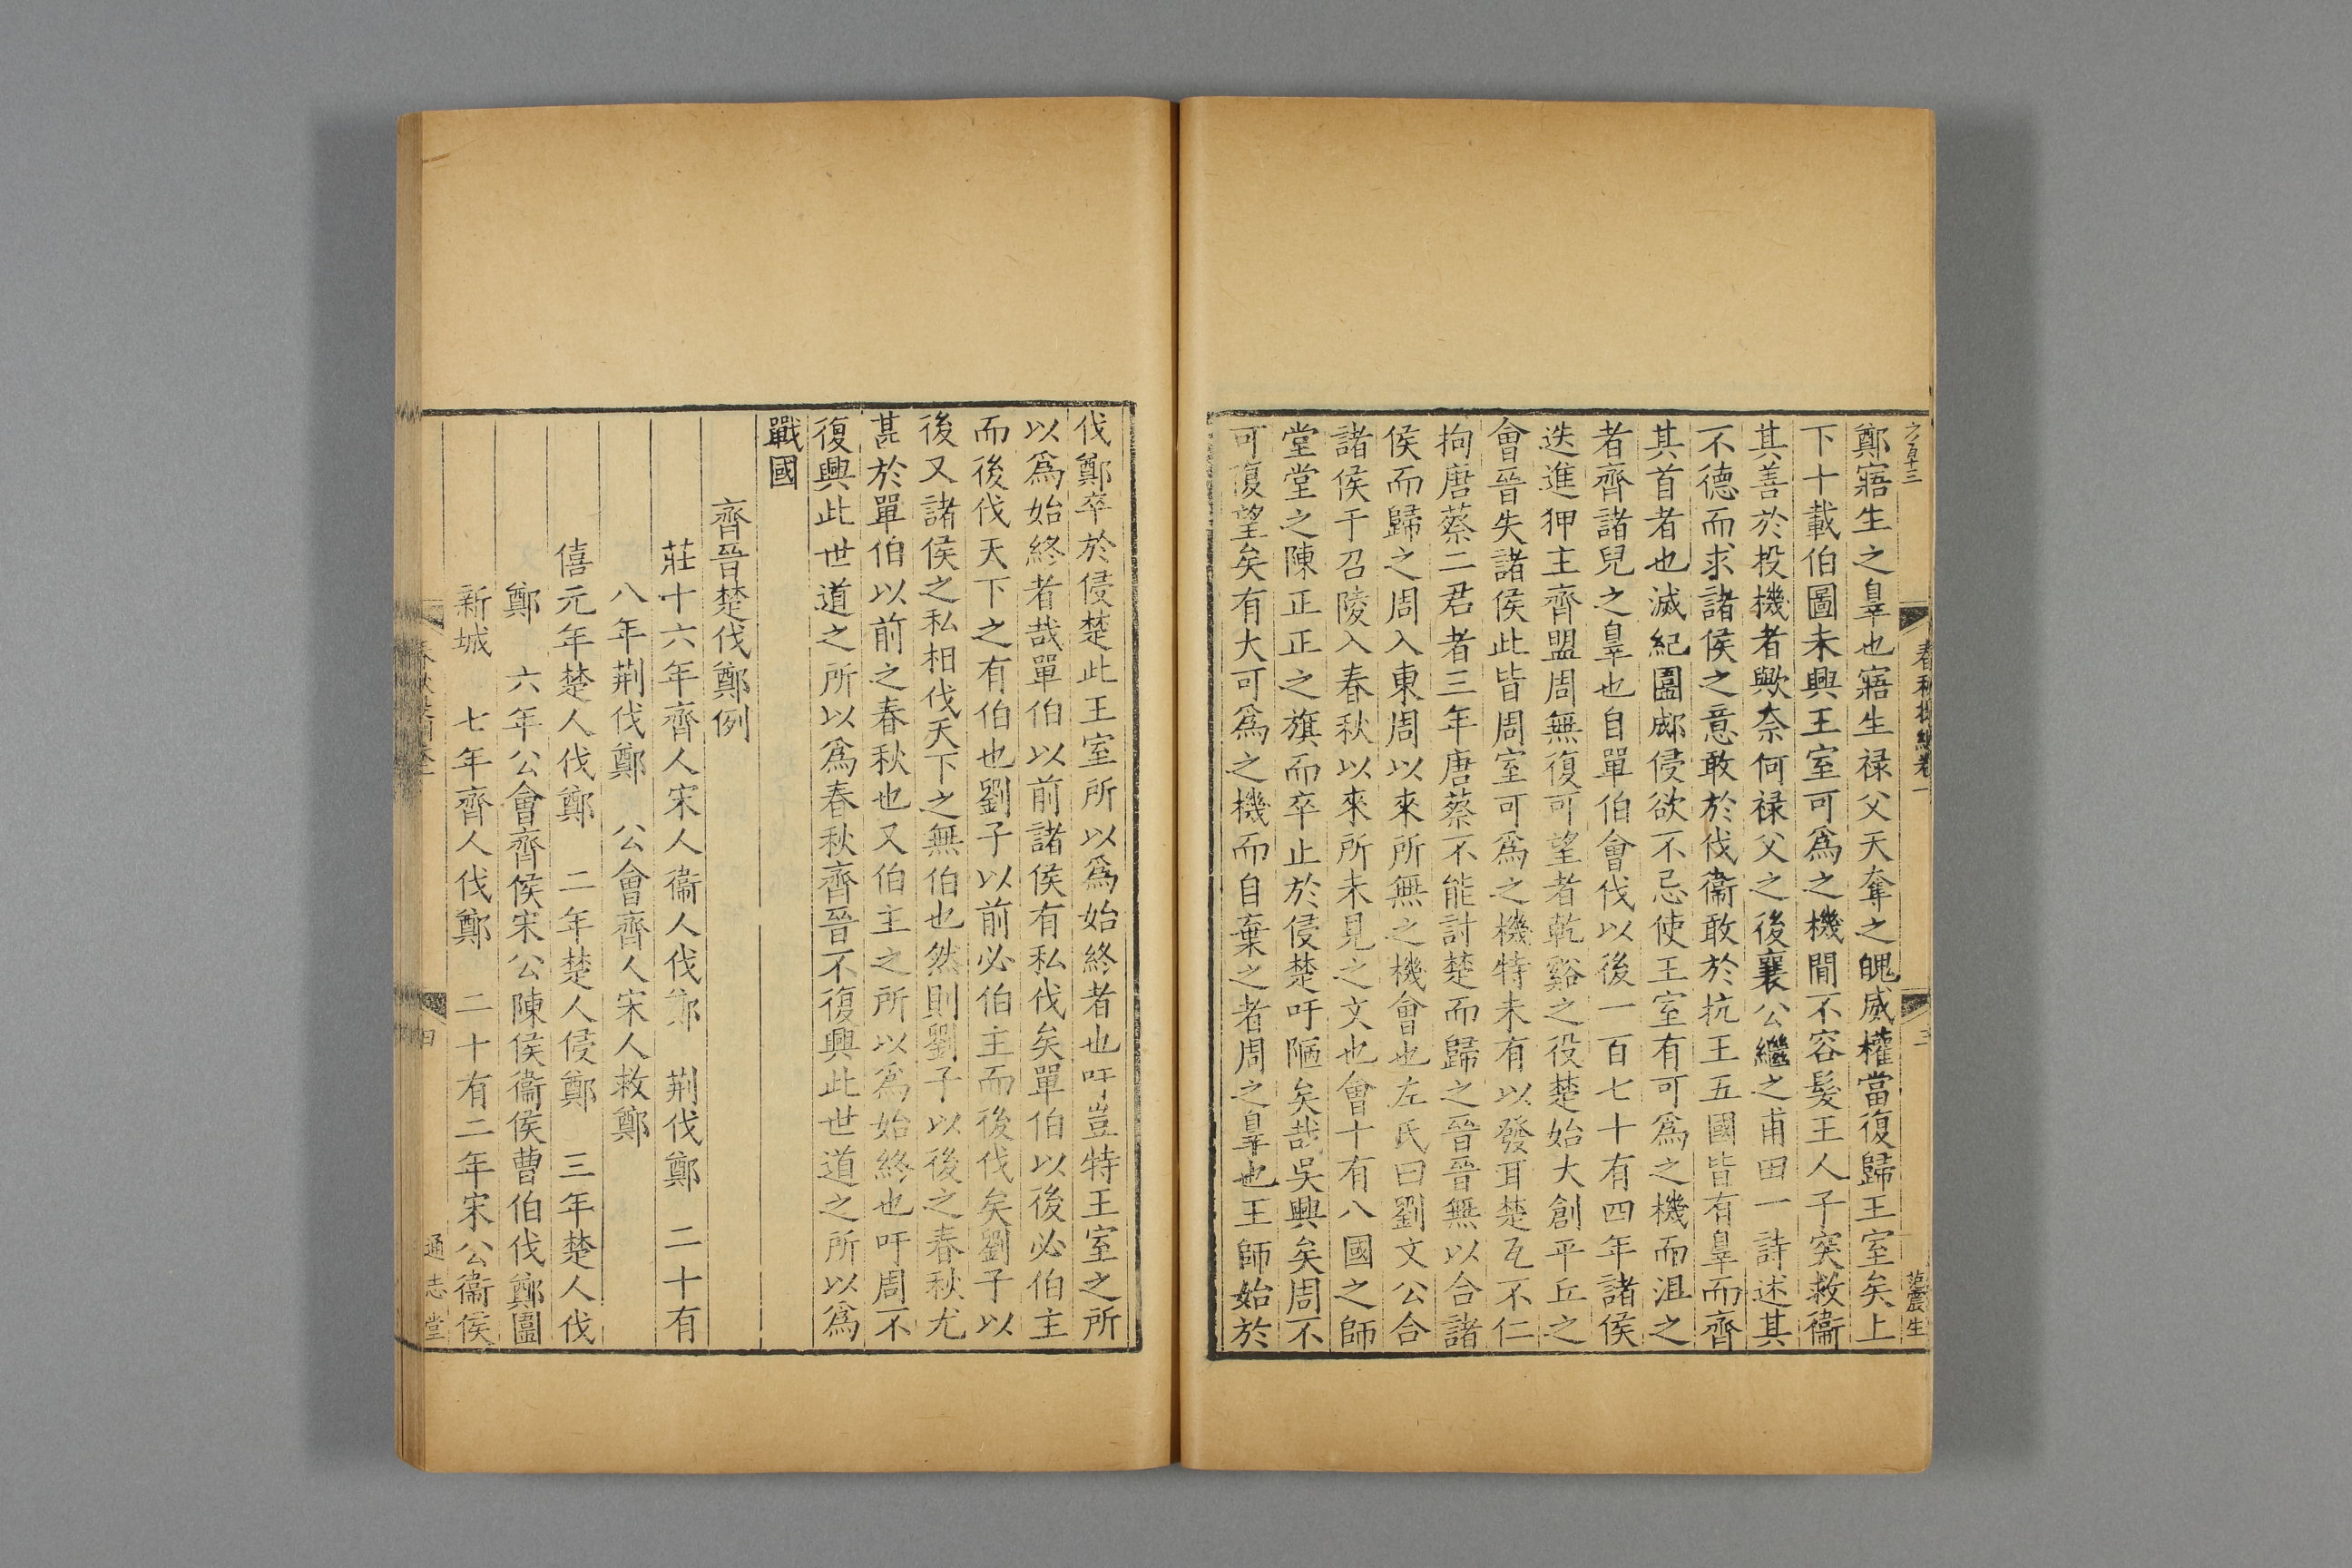 鄭寤生之辠也寤生祿父天奪之魄威權當復歸王室矣上
下十載伯圖未興王室可爲之機閒不容髮王人子突救衞
其善於投機者歟奈何祿父之後襄公繼之甫田一詩述其
不德而求諸侯之意敢於伐衞敢於抗王五國皆有辠而齊
其首者也滅紀圍郕侵欲不忌使王室有可爲之機而沮之
者齊諸兒之辠也自單伯會伐以後一百七十有四年諸侯
迭進狎主齊盟周無復可望者乾谿之役楚始大創平丘之
會晉失諸侯此皆周室可爲之機特未有以發耳楚瓦不仁
拘唐蔡二君者三年唐蔡不能討楚而歸之晉晉無以合諸
侯而歸之周入東周以來所無之機會也左氏曰劉文公合
諸侯于召陵入春秋以來所未見之文也會十有八國之師
堂堂之陳正正之旗而卒止於侵楚吁陋矣哉吳興矣周不
可復望矣有大可爲之機而自棄之者周之辠也王師始於
伐鄭卒於侵楚此王室所以爲始終者也吁豈特王室之所
以爲始終者哉單伯以前諸侯有私伐矣單伯以後必伯主
而後伐天下之有伯也劉子以前必伯主而後伐矣劉子以
後又諸侯之私相伐天下之無伯也然則劉子以後之春秋尤
甚於單伯以前之春秋也又伯主之所以爲始終也吁周不
復興此世道之所以爲春秋齊晉不復興此世道之所以爲
戰國
齊晉楚伐鄭例
莊十六年齊人宋人衞人伐鄭　荆伐鄭　二十有
八年荆伐鄭　公會齊人宋人救鄭
僖元年楚人伐鄭　二年楚人侵鄭　三年楚人伐
鄭　六年公會齊侯宋公陳侯衞侯曹伯伐鄭圍
新城　七年齊人伐鄭　二十有二年宋公衞侯
通志堂